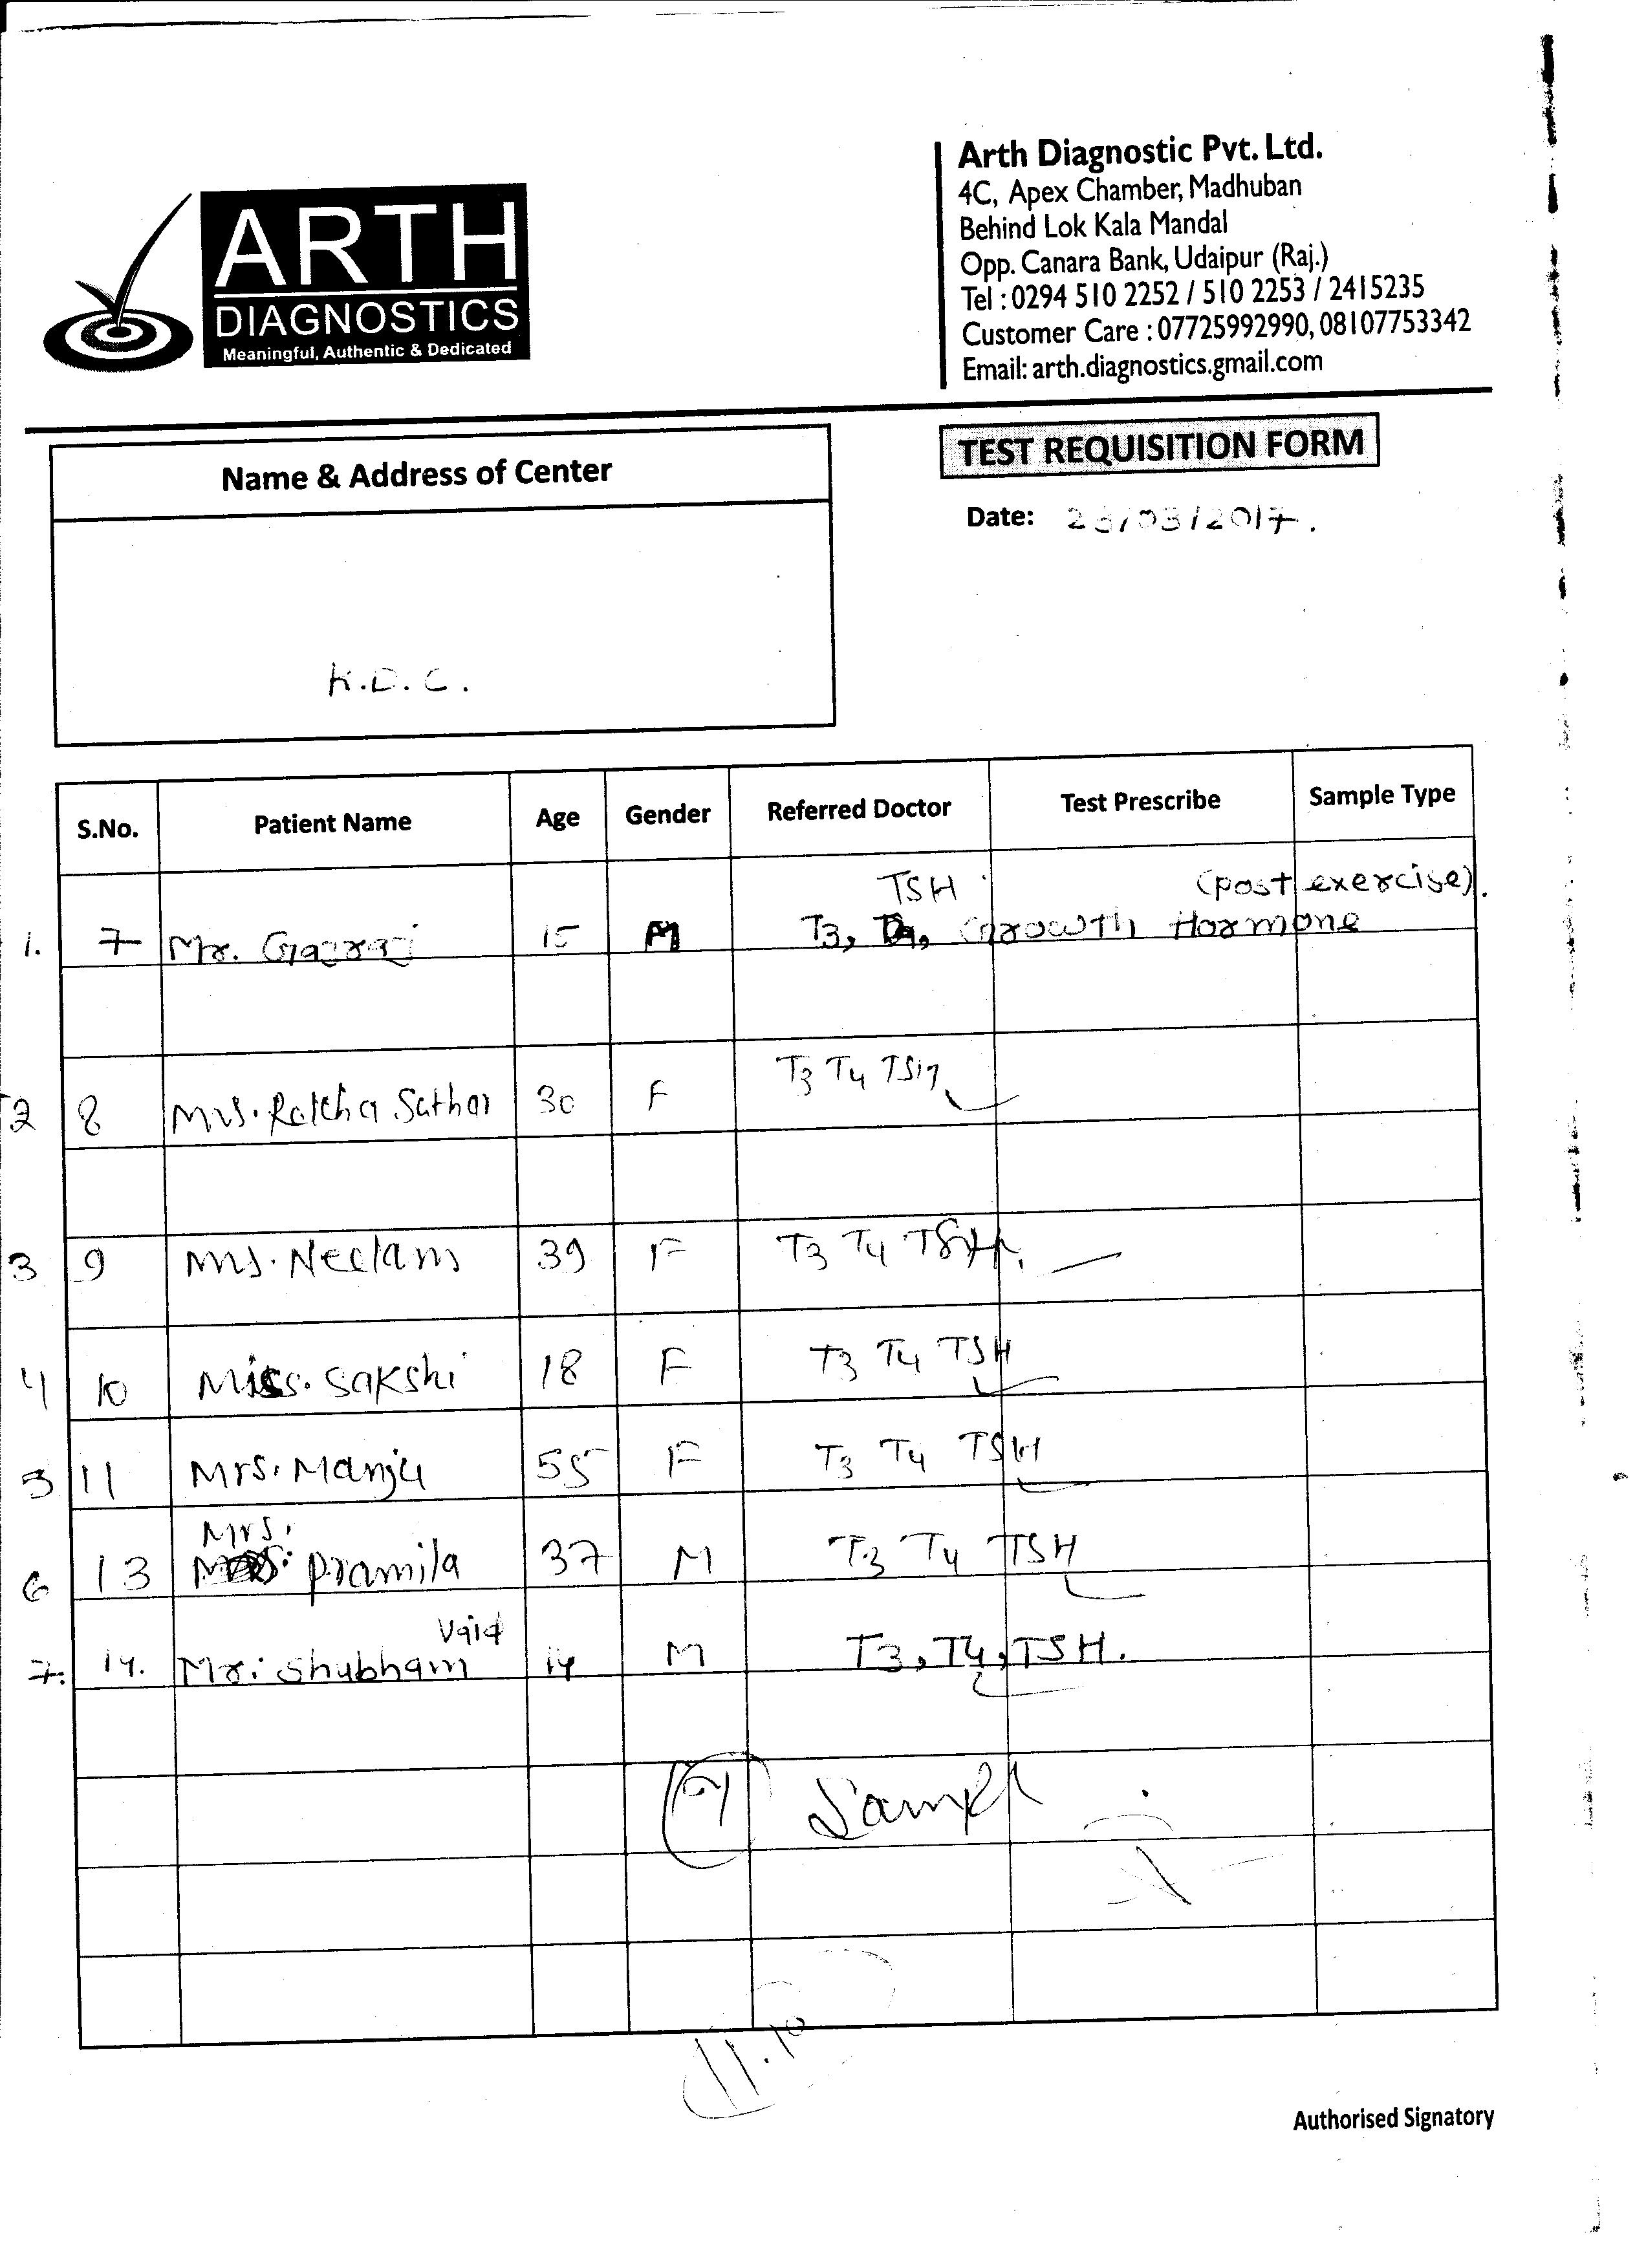 ARTH
DIAGNOSTICS
Meaningful, Authentic & Dedicated
Arth Diagnostic Pvt. Ltd.
4C, Apex Chamber, Madhuban
Behind Lok Kala Mandal
Opp. Canara Bank, Udaipur (Raj.)
Tel : 0294 510 2252 / 510 2253 / 2415235
Customer Care : 07725992990, 08107753342
Email: arth.diagnostics.gmail.com
Name & Address of Center
TEST REQUISITION FORM
Date: 23/03/2017.
K.D.C.
S.No. Patient Name Age Gender Referred Doctor Test Prescribe Sample Type
TSH (post exercise).
1. 7 Mr. Gajraj 15 M T3, T4, Growth Hormone
2 8 Mrs. 30 F T3 T4 TSH
3 9 Ms. Neelam 39 F T3 T4 TSH.
4 10 Miss. Sakshi 18 F T3 T4 TSH
5 11 Mrs. Manju 55 F T3 T4 TSH
Mrs.
6 13 Pramila 37 M T3 T4 TSH
Vaid
7. 14. Mr. Shubham 14 M T3, T4, TSH.
7 Sampl
11.10
Authorised Signatory